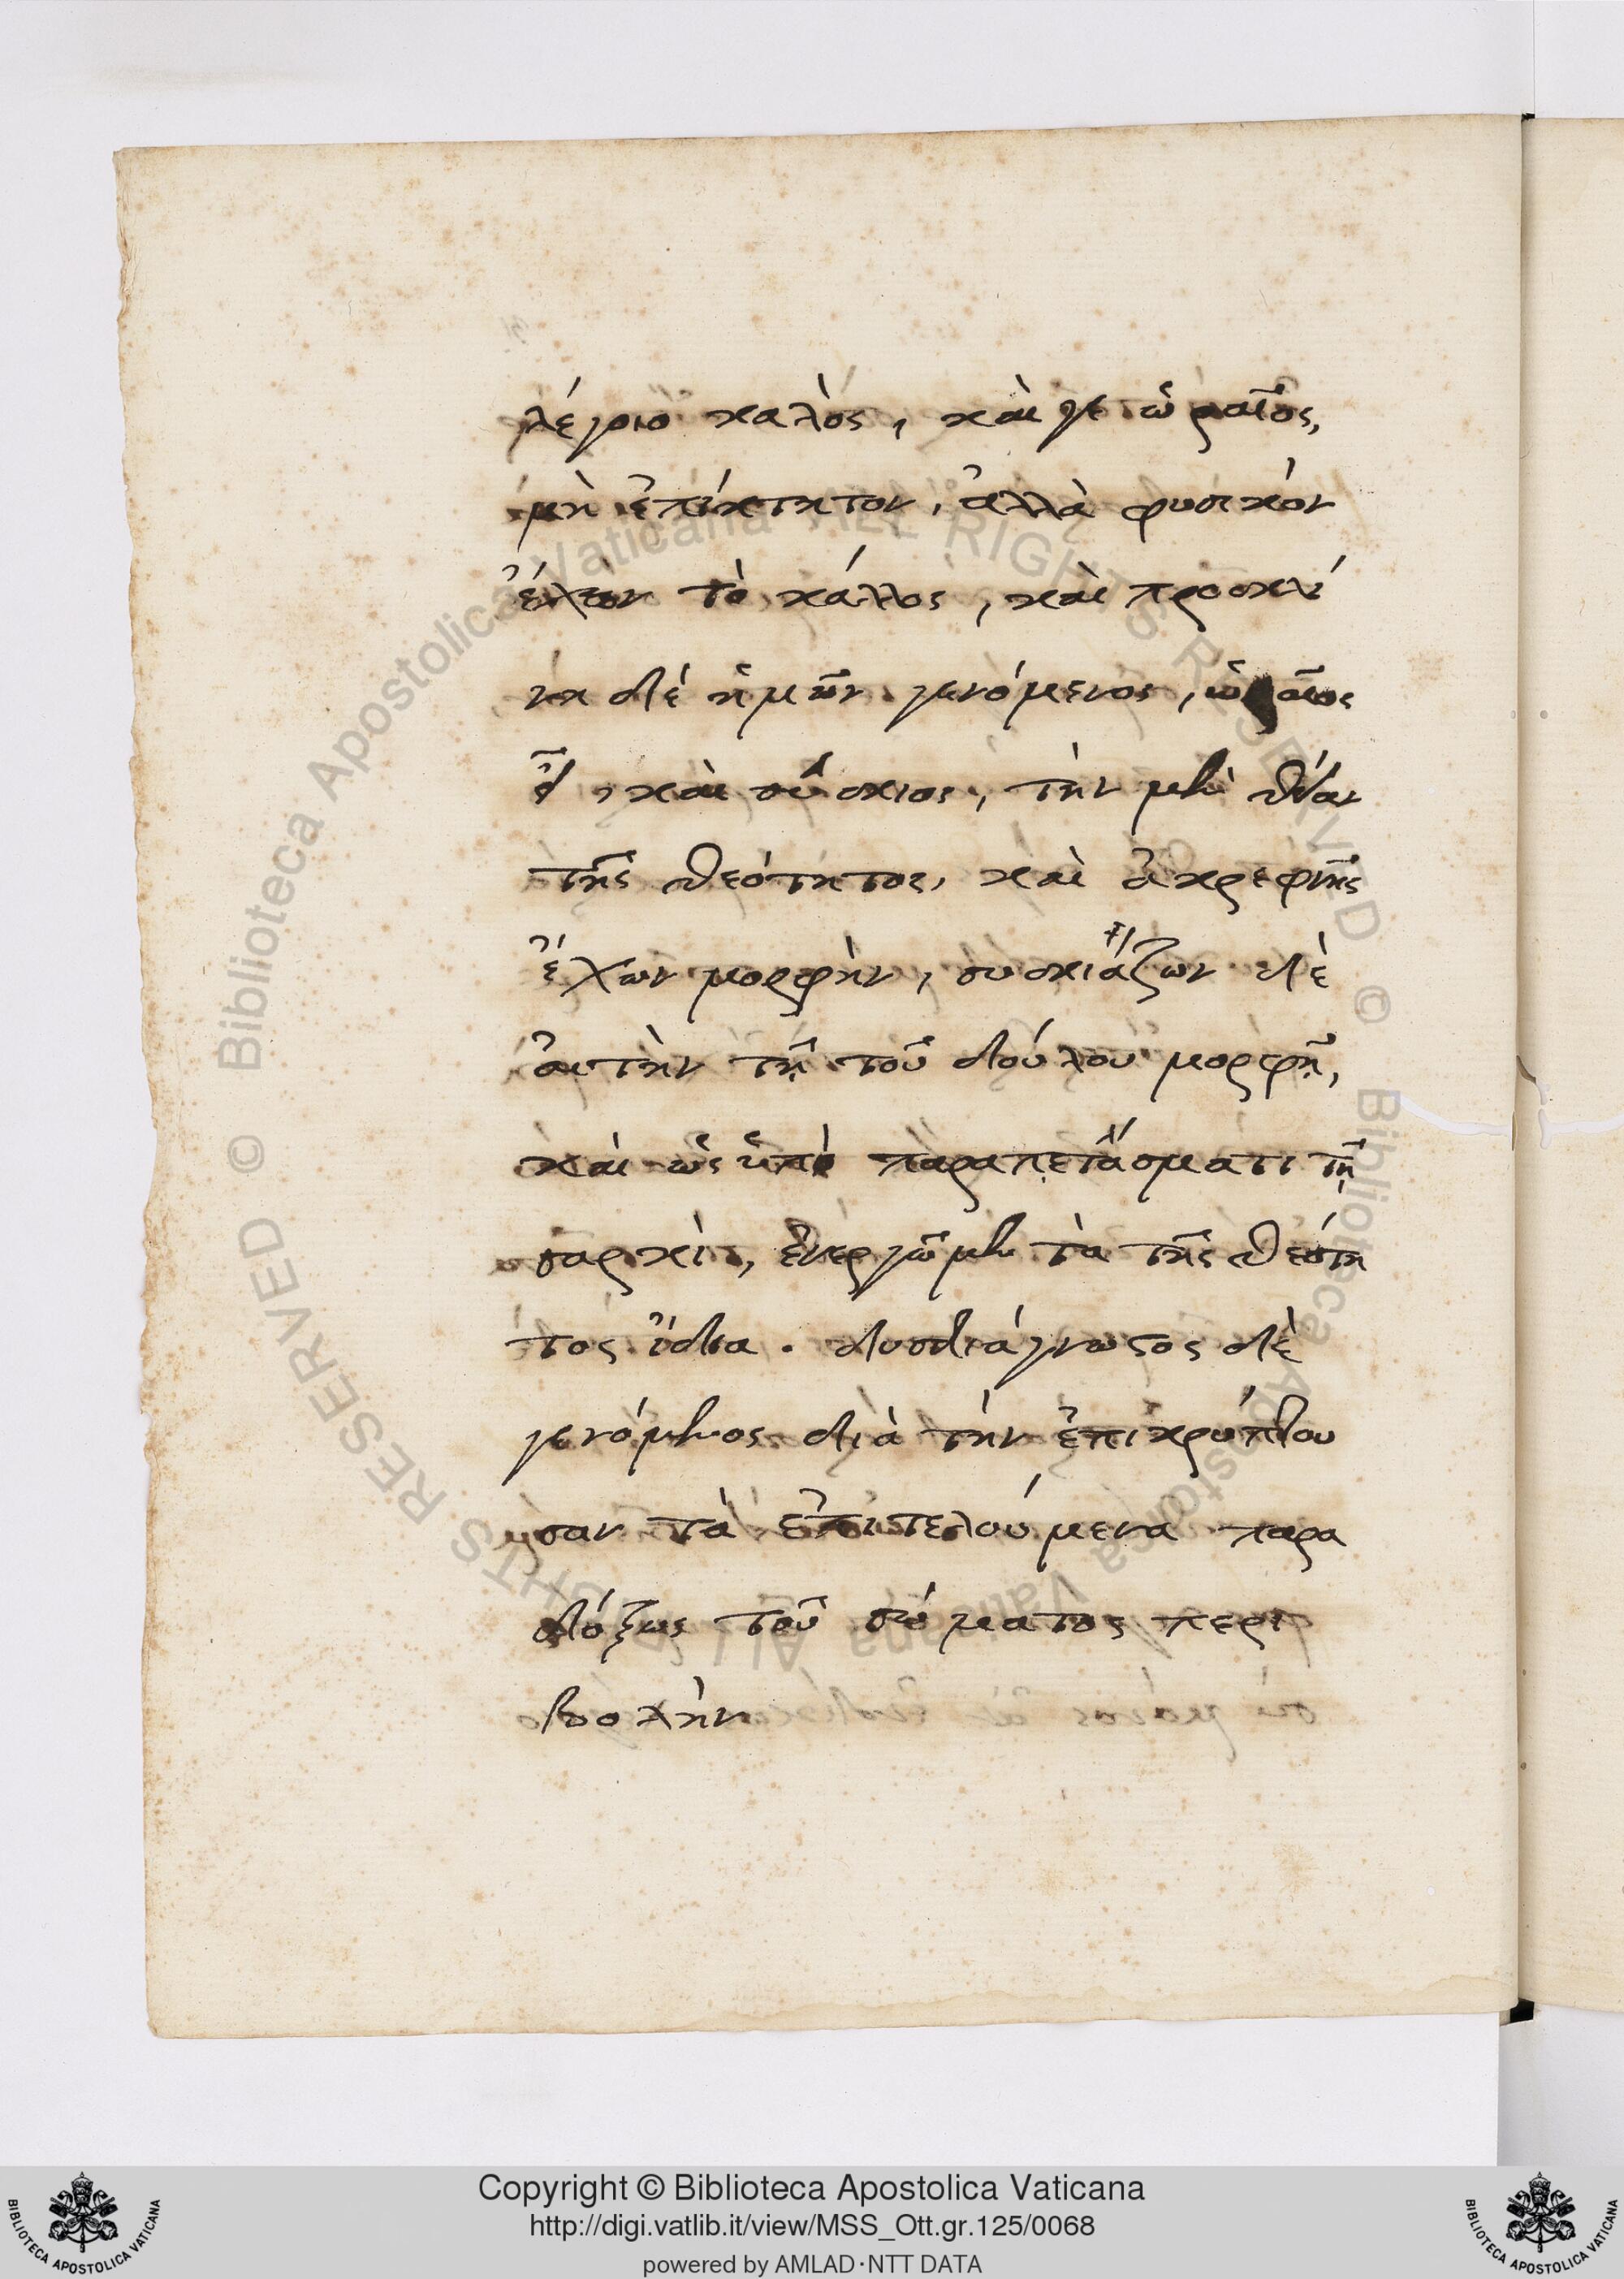 λέγοιο καλὸς, καὶ γε ὡραῖος,
μὴ ἐπίκτητον, ἀλλὰ φυσικὸν
τὸ κάλλος, καὶ προσκλί
νη δὲ ἡμῶν γενόμενος,
καὶ σύσκιος, τὴν μὲν θέαν
τῆς θεότητος, καὶ ἀκρεφνῆς
ἔχων μορφὴν, συσκιάζων δὲ
αὐτὴν τῇ τοῦ δούλου μορφῇ,
καὶ ὡς ὑπὸ παραπετάσματι τῇ
σαρκὶ, ἐνεργῶν μὲν τὰ τῆς θεότη
τος ἴδια. δυσδιάγνωστος δὲ
γενόμενος διὰ τὴν ἐπικρύπτου
σαν τὰ ἐπιτελούμενα παρα
δόξως τοῦ σώματος περι
βολὴν
© Biblioteca Apostolica Vaticana ALL RIGHTS RESERVED © Biblioteca Apostolica Vaticana ALL RIGHTS RESERVED
Copyright © Biblioteca Apostolica Vaticana
http://digi.vatlib.it/view/MSS_Ott.gr.125/0068
powered by AMLAD·NTT DATA
BIBLIOTECA APOSTOLICA VATICANA
BIBLIOTECA APOSTOLICA VATICANA